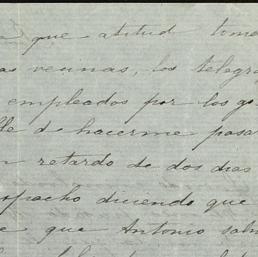 que atitud tome
las reunas, los telegra
empleados por los go
de hacerme pasar
un retardo de dos dias
spacho diciendo que
e que Antonio sal